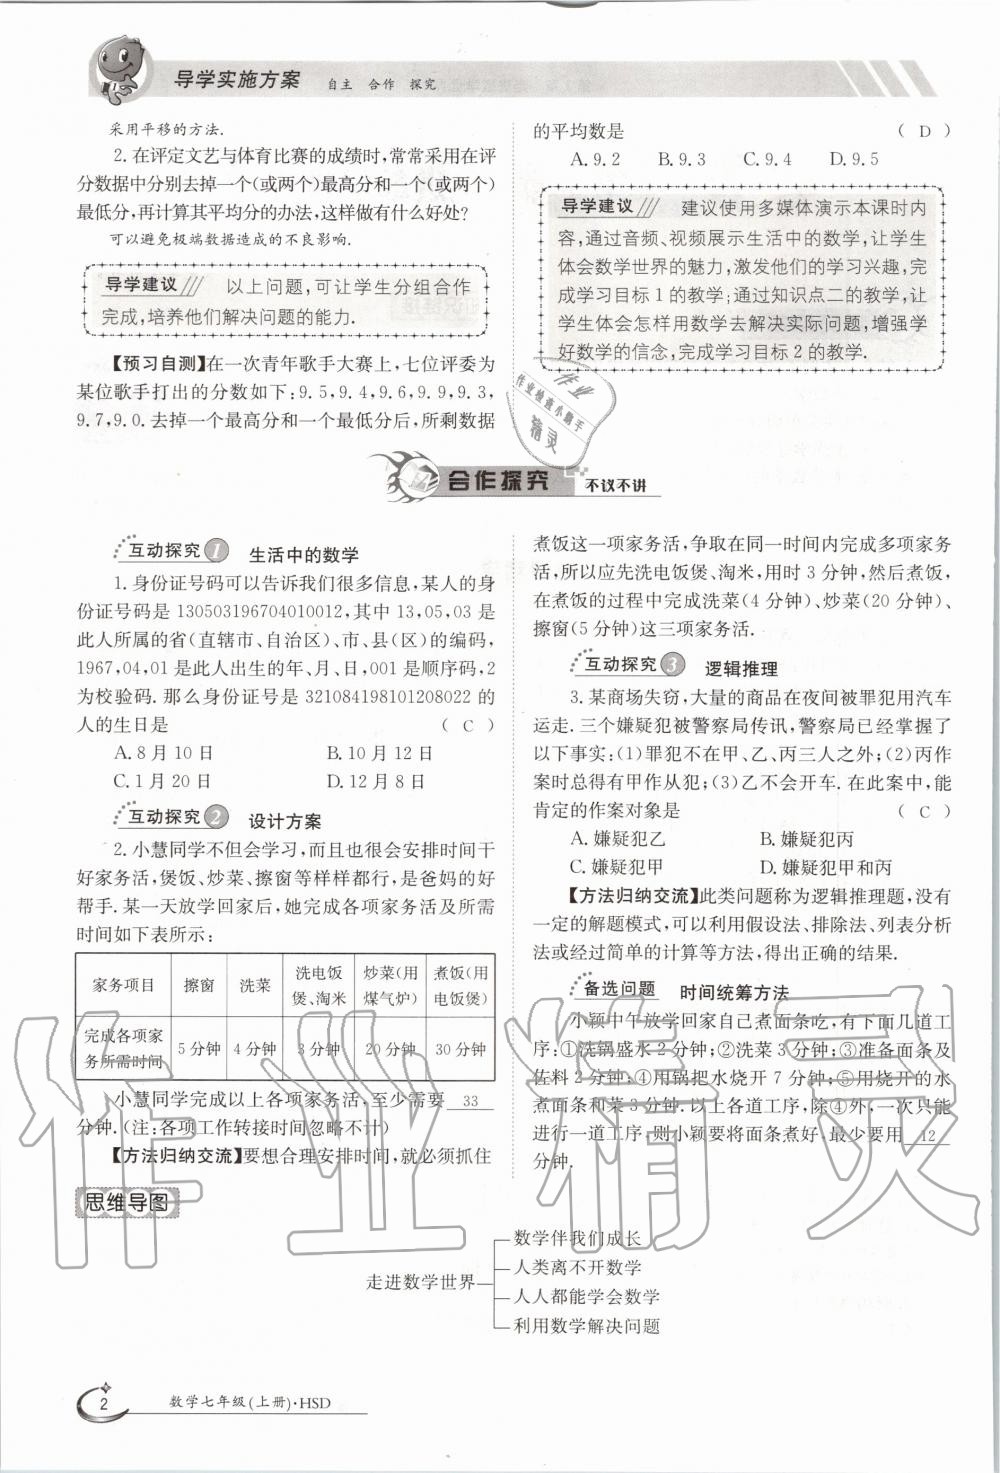 导学实施方案 自主 合作 探究
采用平移的方法.
2. 在评定文艺与体育比赛的成绩时,常常采用在评
分数据中分别去掉一个(或两个)最高分和一个(或两个)
最低分,再计算其平均分的办法,这样做有什么好处?
可以避免极端数据造成的不良影响.
导学建议 以上问题,可让学生分组合作
完成,培养他们解决问题的能力.
【预习自测】在一次青年歌手大赛上,七位评委为
某位歌手打出的分数如下:9.5,9.4,9.6,9.9,9.3,
9.7,9.0. 去掉一个最高分和一个最低分后,所剩数据
的平均数是 ( D )
A. 9.2 B. 9.3 C. 9.4 D. 9.5
导学建议 建议使用多媒体演示本课时内
容,通过音频、视频展示生活中的数学,让学生
体会数学世界的魅力,激发他们的学习兴趣,完
成学习目标 1 的教学;通过知识点二的教学,让
学生体会怎样用数学去解决实际问题,增强学
好数学的信念,完成学习目标 2 的教学.
作业
作业检查小助手
精灵
合作探究 不议不讲
互动探究 1 生活中的数学
1. 身份证号码可以告诉我们很多信息,某人的身
份证号码是 130503196704010012,其中 13,05,03 是
此人所属的省(直辖市、自治区)、市、县(区)的编码,
1967,04,01 是此人出生的年、月、日,001 是顺序码,2
为校验码. 那么身份证号是 321084198101208022 的
人的生日是 ( C )
A. 8 月 10 日 B. 10 月 12 日
C. 1 月 20 日 D. 12 月 8 日
互动探究 2 设计方案
2. 小慧同学不但会学习,而且也很会安排时间干
好家务活,煲饭、炒菜、擦窗等样样都行,是爸妈的好
帮手. 某一天放学回家后,她完成各项家务活及所需
时间如下表所示:
家务项目 擦窗 洗菜 洗电饭煲、淘米 炒菜(用煤气炉) 煮饭(用电饭煲)
完成各项家务所需时间 5 分钟 4 分钟 3 分钟 20 分钟 30 分钟
小慧同学完成以上各项家务活,至少需要 33
分钟.(注:各项工作转接时间忽略不计)
【方法归纳交流】要想合理安排时间,就必须抓住
煮饭这一项家务活,争取在同一时间内完成多项家务
活,所以应先洗电饭煲、淘米,用时 3 分钟,然后煮饭,
在煮饭的过程中完成洗菜(4 分钟)、炒菜(20 分钟)、
擦窗(5 分钟)这三项家务活.
互动探究 3 逻辑推理
3. 某商场失窃,大量的商品在夜间被罪犯用汽车
运走. 三个嫌疑犯被警察局传讯,警察局已经掌握了
以下事实:(1)罪犯不在甲、乙、丙三人之外;(2)丙作
案时总得有甲作从犯;(3)乙不会开车. 在此案中,能
肯定的作案对象是 ( C )
A. 嫌疑犯乙 B. 嫌疑犯丙
C. 嫌疑犯甲 D. 嫌疑犯甲和丙
【方法归纳交流】此类问题称为逻辑推理题,没有
一定的解题模式,可以利用假设法、排除法、列表分析
法或经过简单的计算等方法,得出正确的结果.
备选问题 时间统筹方法
小颖中午放学回家自己煮面条吃,有下面几道工
序:①洗锅盛水 2 分钟;②洗菜 3 分钟;③准备面条及
佐料 2 分钟;④用锅把水烧开 7 分钟;⑤用烧开的水
煮面条和菜 3 分钟. 以上各道工序,除④外,一次只能
进行一道工序,则小颖要将面条煮好,最少要用 12
分钟.
作业精灵
思维导图
走进数学世界
数学伴我们成长
人类离不开数学
人人都能学会数学
利用数学解决问题
2 数学七年级(上册)·HSD